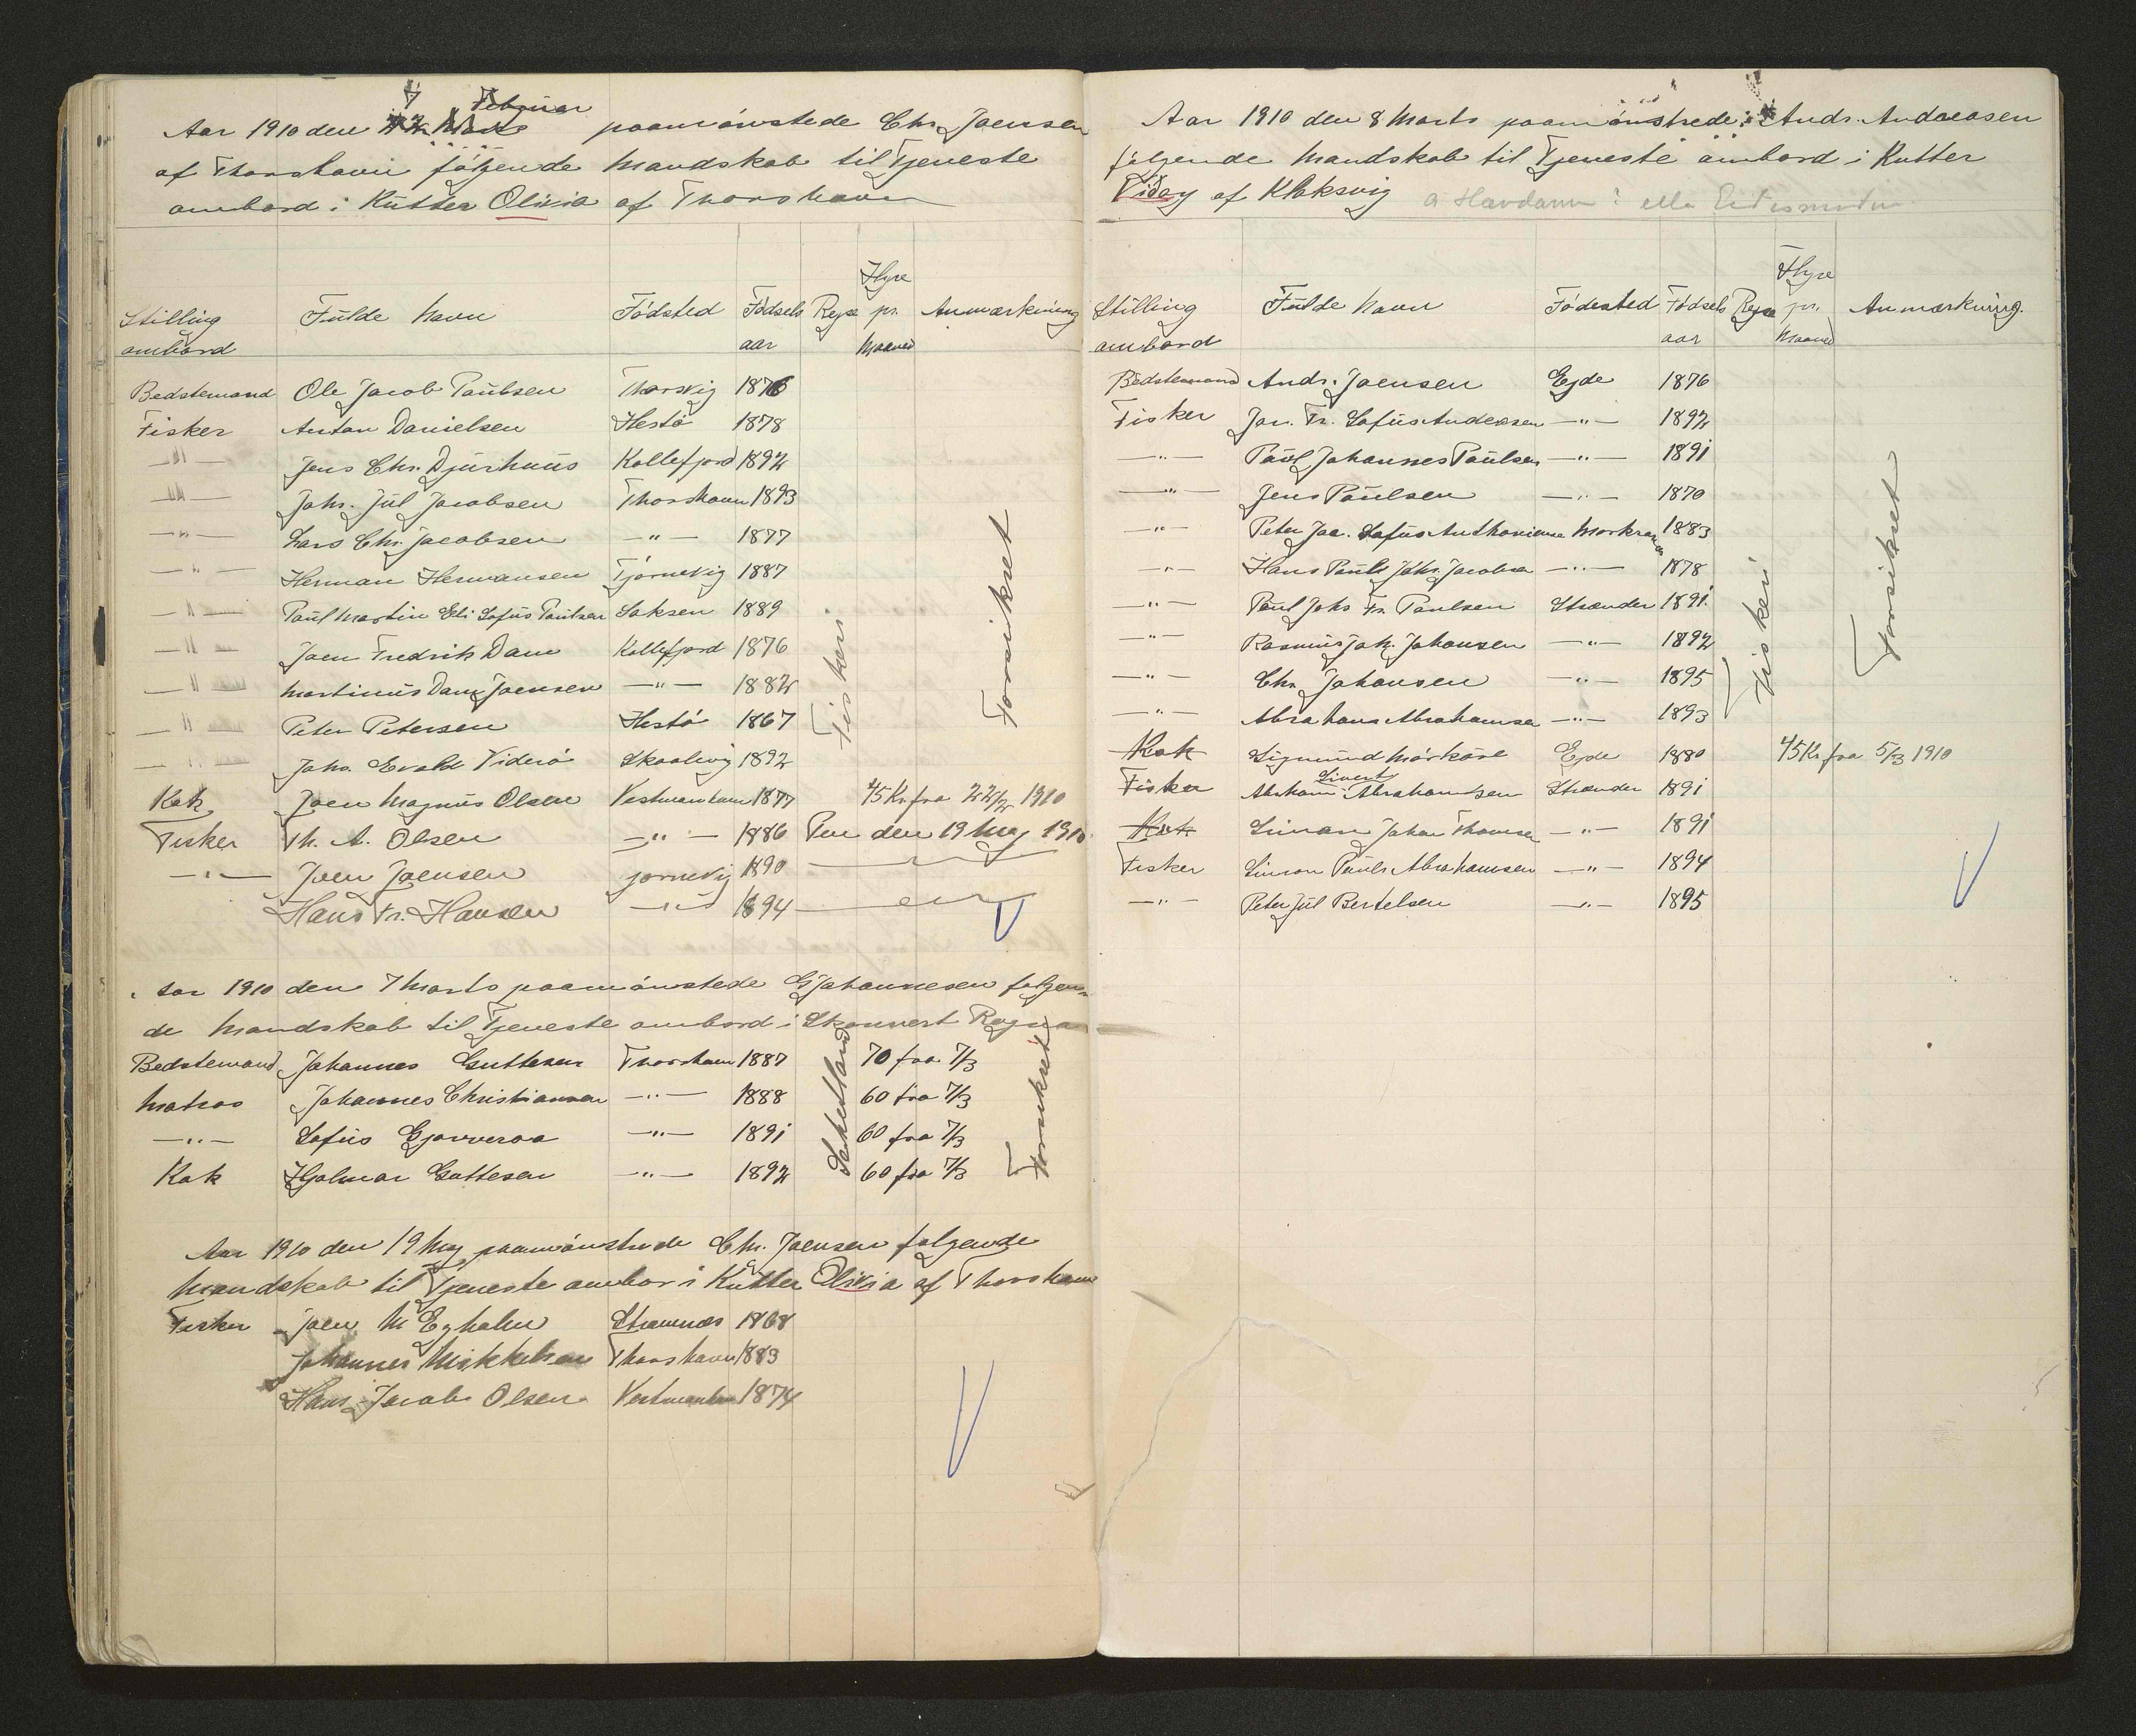 Februar
Aar 1910 den paamönstede Chr. Joensen
af Thorshavn følgende Mandskab til Tjeneste
ombord i Kutter Olivia af Thorshavn
Stilling ombord Fulde Navn Födsted Födsels aar Rejse Hyre pr. Maaned Anmærkning
Bedstemand Ole Jacob Paulsen Thorsvig 1876
Fisker Anton Danielsen Hestö 1878
—"— Jens Chr. Djurhuus Kollefjord 1892
—"— Johs. Jul Jacobsen Thorshavn 1893
—"— Lars Chr. Jacobsen —"— 1877
—"— Herman Hermansen Tjörnevig 1887
—"— Paul Martin Eli Sofus Paulsen Saksen 1889
—"— Joen Fredrik Dam Kollefjord 1876
—"— Martinus Dam Joensen —"— 1882
—"— Peter Petersen Hestö 1867
—"— Johs. Evald Viderö Skaalevig 1892
Fiskeri
Forsikret
Kok Joen Magnus Olsen Vestmanhavn 1877 45 Kr fra 22/2 1910
Fisker Th. A. Olsen —"— 1886 den 19 Maj 1910
—"— Joen Joensen Tjörnevig 1890
Hans Fr. Hansen —"— 1894
Aar 1910 den 7 Marts paamönstede G Johannesen følgen-
de Mandskab til Tjeneste ombord i Skonnert Ragna
Bedstemand Johannes Guttesen Thorshavn 1887 70 fra 7/3
Matros Johannes Christiansen —"— 1888 60 fra 7/3
—"— Sofus Gjoveraa —"— 1891 60 fra 7/3
Kok Hjalmar Guttesen —"— 1892 60 fra 7/3
Forsikret
Aar 1910 den 19 Maj paamönstrede Chr. Joensen følgende
Mandskab til Tjeneste ombor i Kutter Olivia af Thorshavn
Fisker Joen M Egholm Strømnæs 1868
Johannes Mikkelsen Thorshavn 1883
Hans Jacob Olsen Vestmanhavn 1874
Aar 1910 den 8 Marts paamönstrede: Andr. Andreasen
følgende Mandskab til Tjeneste ombord i Kutter
Vidoy af Klaksvig
Stilling ombord Fulde Navn Födested Födsels aar Rejse Hyre pr. Maaned Anmærkning.
Bedstemand Andr. Joensen Ejde 1876
Fisker Joh. Fr. Sofus Andreasen —"— 1892
—"— Paul Johannes Paulsen —"— 1891
—"— Jens Paulsen —"— 1870
—"— Peter Jac. Sofus Anthoniussen Morkranes 1883
—"— Hans Paule Johs. Jacobsen —"— 1878
—"— Paul Johs Fr. Paulsen Strænder 1891
—"— Rasmus Joh. Johansen —"— 1892
—"— Chr. Johansen —"— 1895
—"— Abraham Abrahamsen —"— 1893
Fiskeri
Forsikret
Kok Sigmund Mörköre Ejde 1880 45 Kr fra 5/3 1910
Fisker Abraham Sivert Abrahamsen Strænder 1891
Kok Simon Johan Thomsen —"— 1891
Fisker Simon Pauli Abrahamsen —"— 1894
—"— Peter Jul Bertelsen —"— 1895